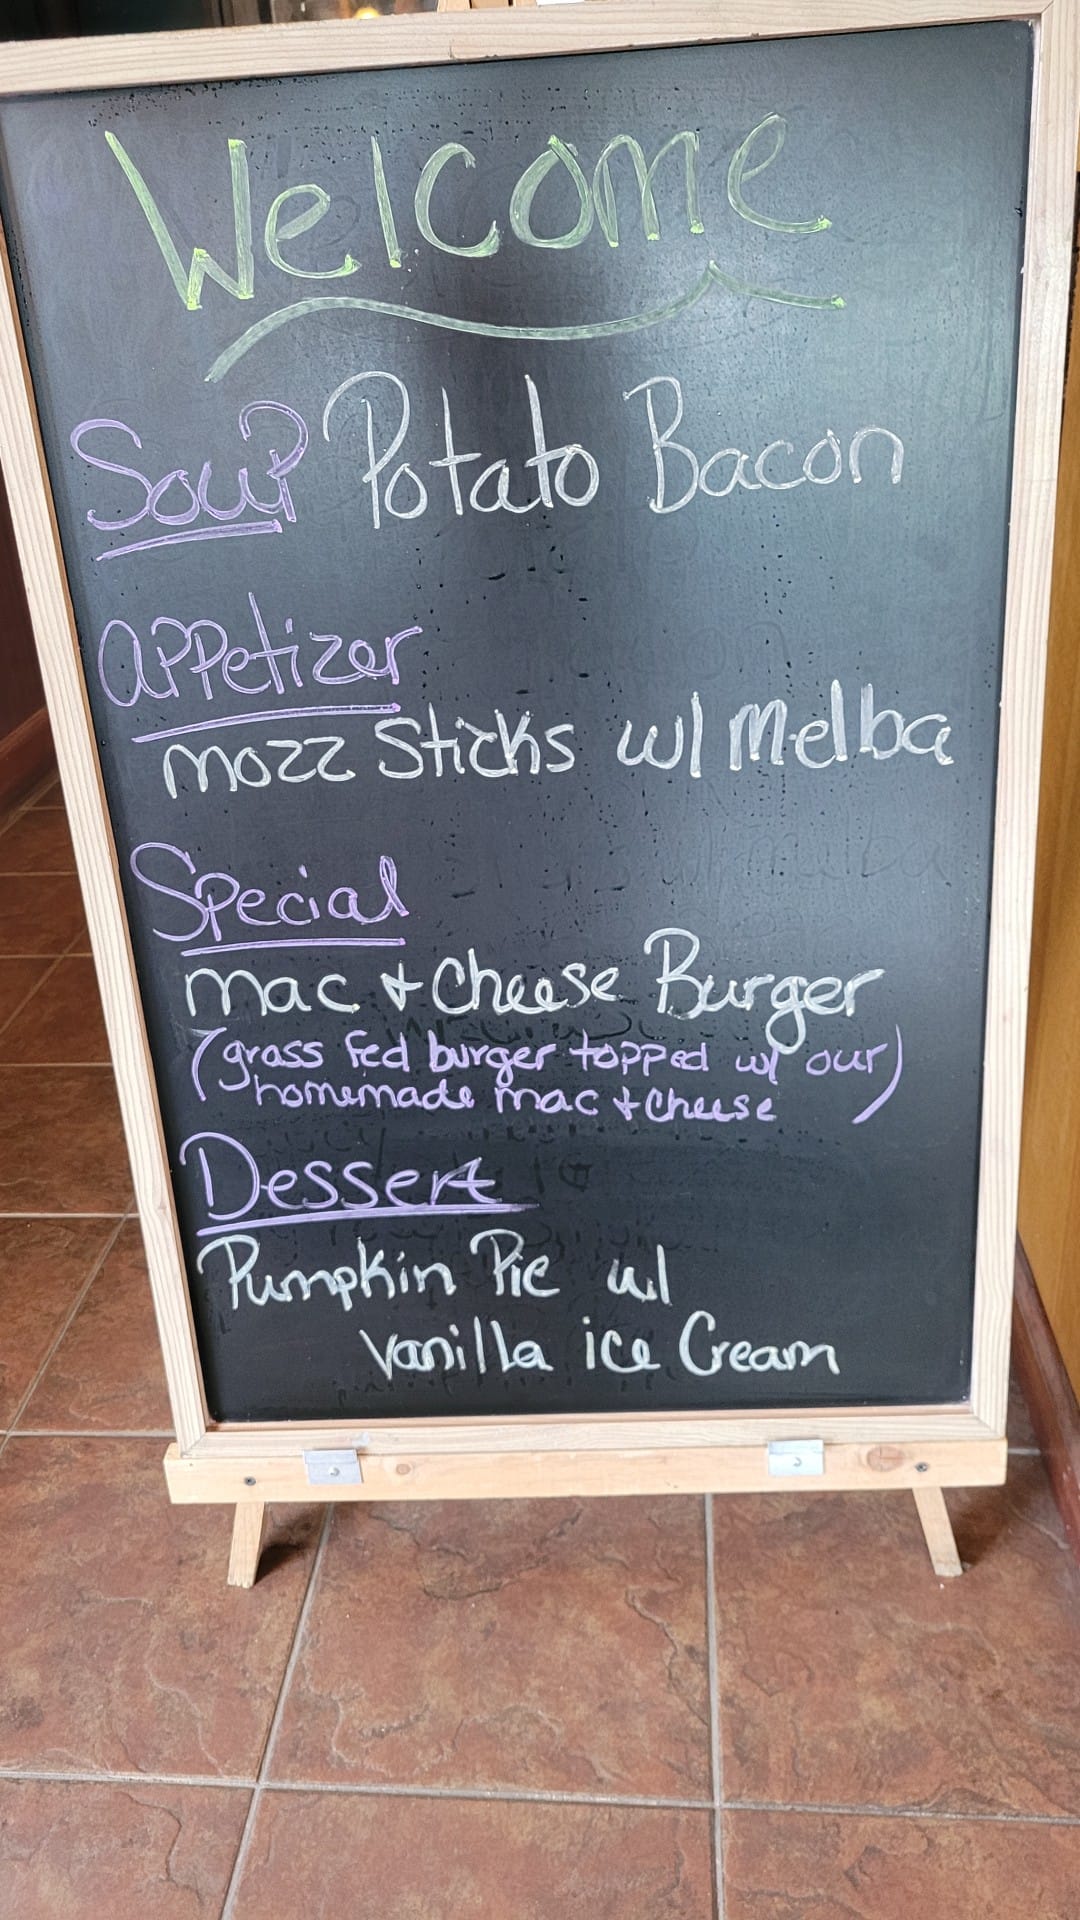 Welcome
Soup Potato Bacon
Appetizer
Mozz Sticks w/ Melba
Special
Mac + Cheese Burger
(grass fed burger topped w/ our)
homemade mac + cheese
Dessert
Pumpkin Pie w/
Vanilla ice Cream